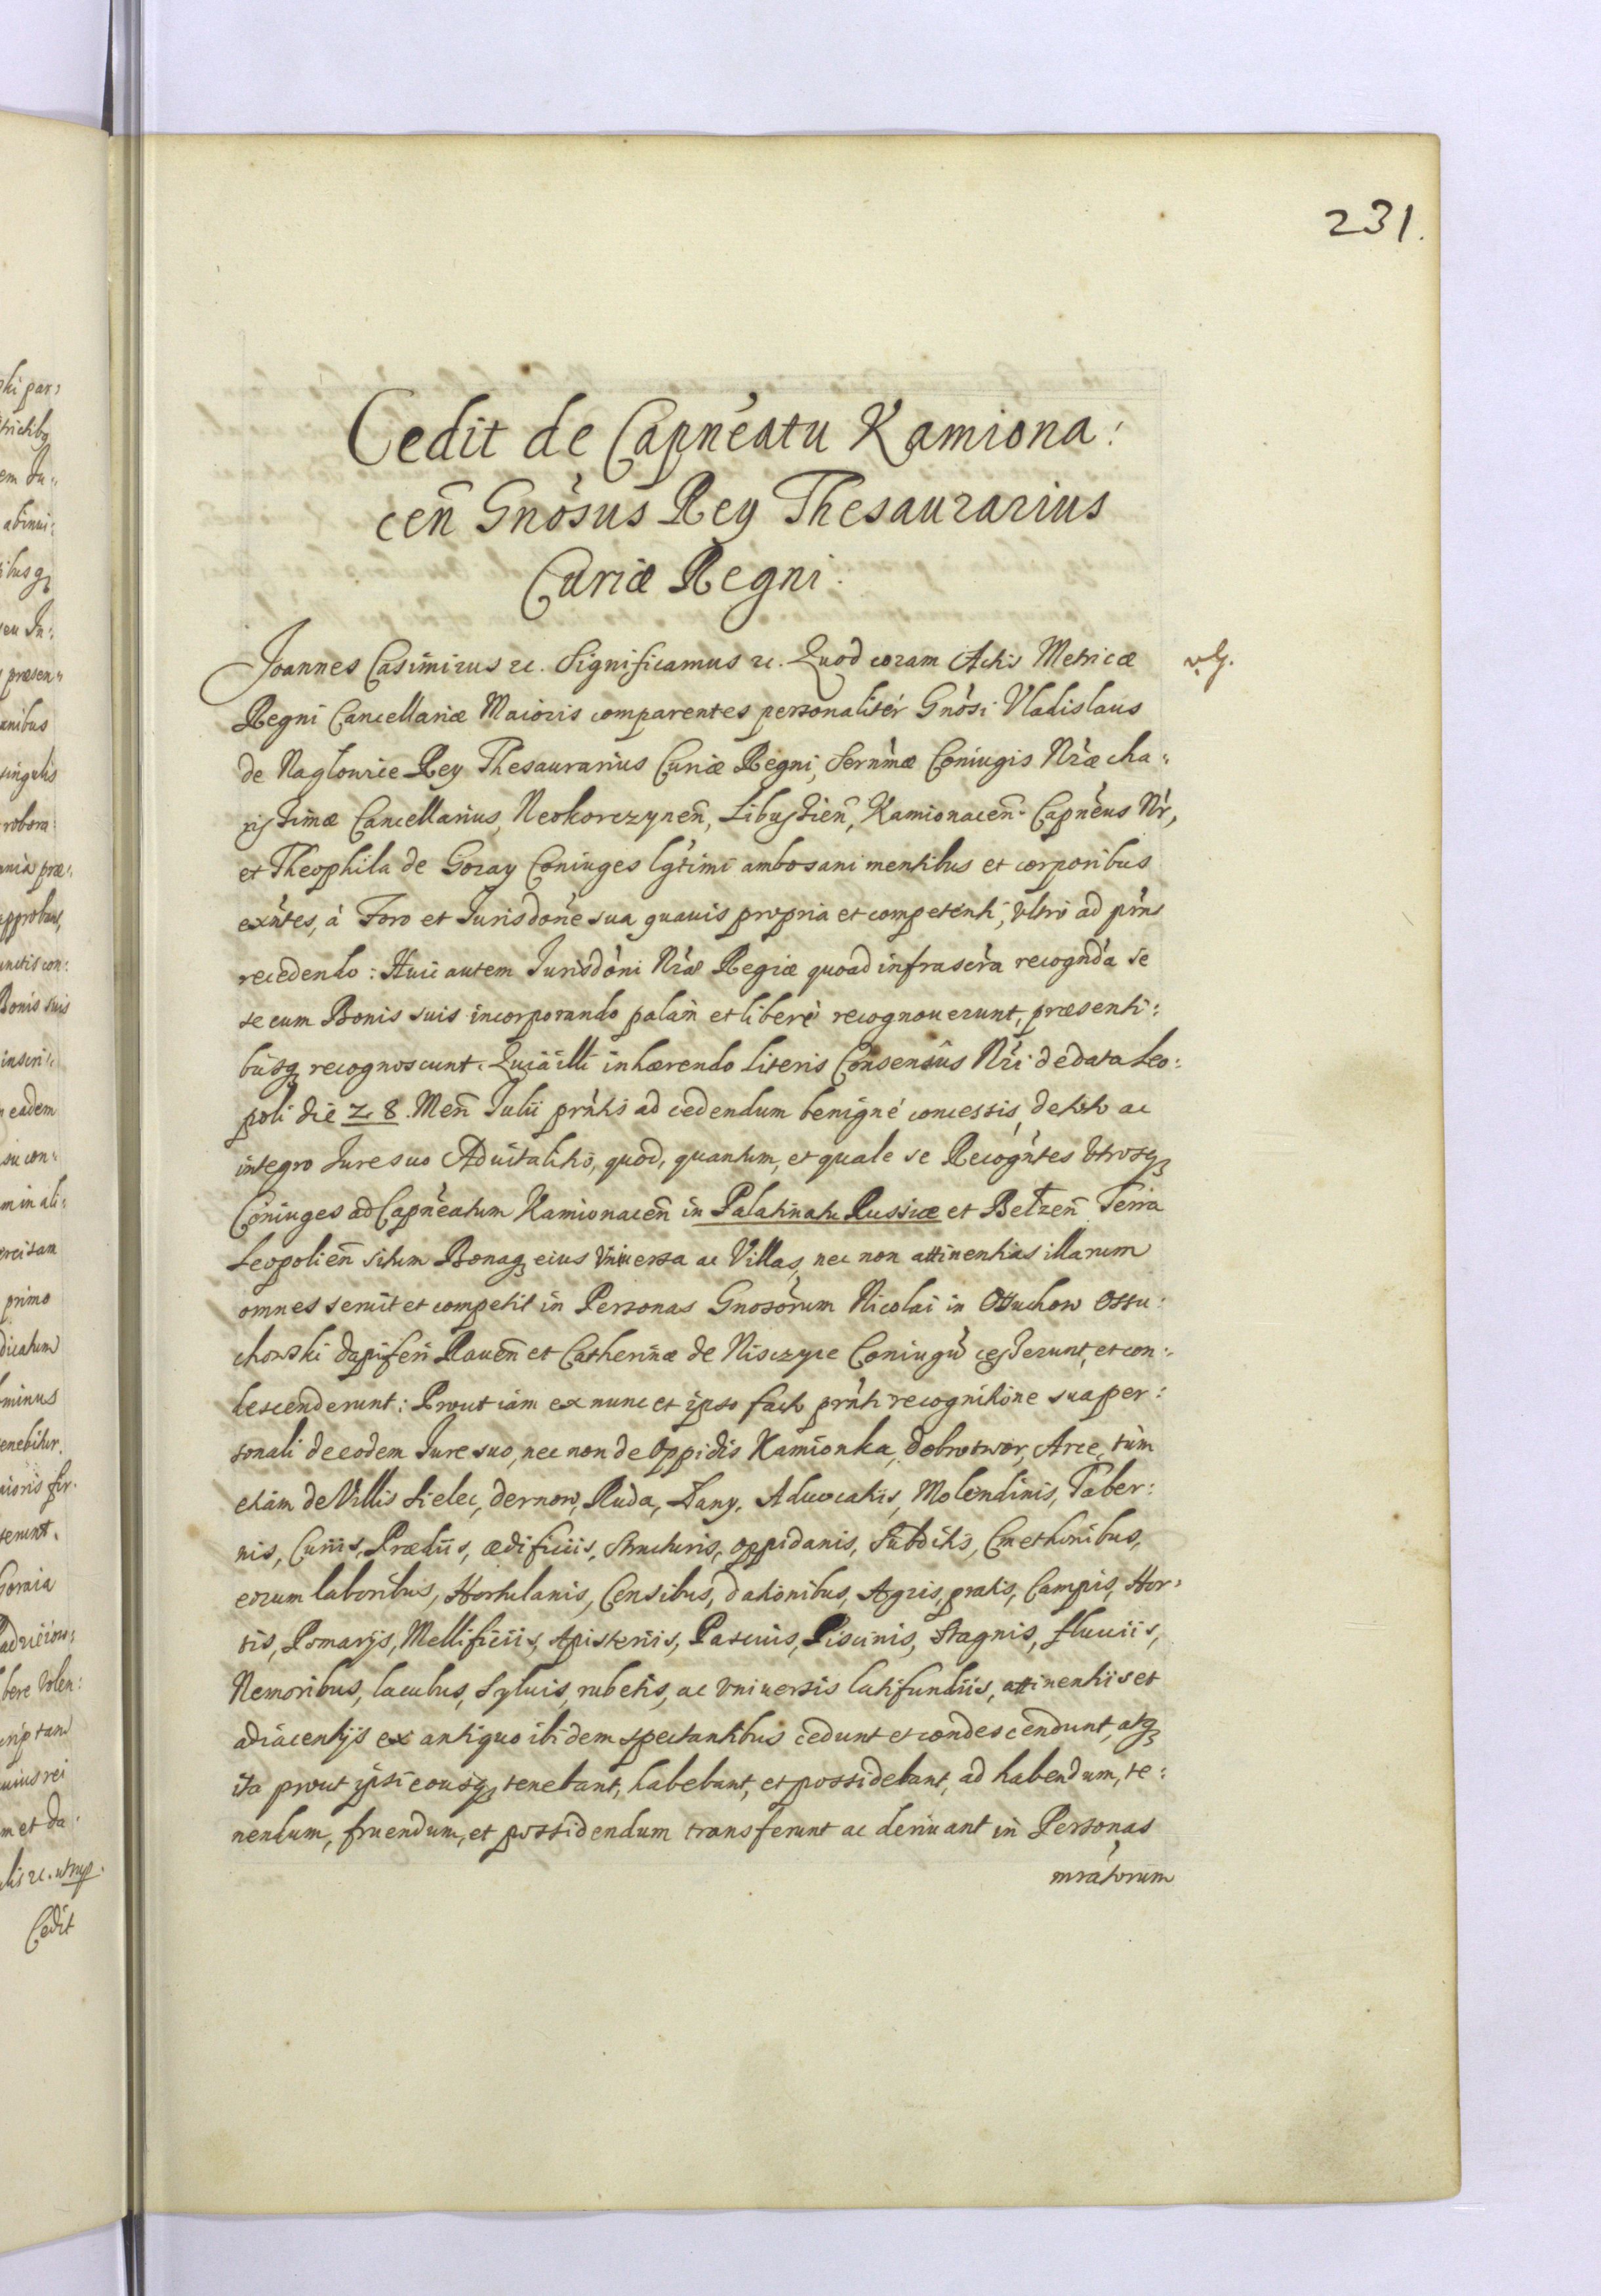 231.
Cedit de Capnéatu Kamiona:
cen̄ Gnósus Rey Thesaurarius
Curiæ Regni.
Joannes Casimirus etc. Significamus etc. Quod coram Actis Metricæ
Regni Cancellariæ Maioris comparentes personalitér Gnósi Vladislaus
de Naglowice Rey Thesaurarius Curiæ Regni, Sernmæ Coniugis Nræ cha:
rissimæ Cancellarius, Neokorczynen̄, Libussien̄, Kamionacen̄ Capnéus Nr,
et Theophila de Goray Coniuges lgtimi ambo sani mentibus et corporibus
exntes, à Foro et Jurisdone sua quauis propria et competenti, vltro ad prns
recedendo: Huic autem Jurisdóni Nræ Regiæ quoad infrascra recognda se
se cum Bonis suis incorporando palam et liberè recognouerunt, præsenti:
busq recognoscunt. Quia illi inhærendo literis Consensûs Nri de data Leo:
poli die 28. Men̄ Julii prntis ad cedendum benignè concessis, de toto ac
integro Jure suo Aduitalitio, quod, quantum, et quale se Recogntes vtrosq
Coniuges ad Capnéatum Kamionacen̄ in Palatinatu Russiæ et Belzen̄ Terra
Leopolien̄ situm Bonaq eius vniuersa ac Villas, nec non attinentias illarum
omnes seruit et competit in Personas Gnosórum Nicolai in Ossuchow Ossu:
chowski dapiferi Rauen̄ et Catherinæ de Nisczyce Coniugũ cesserunt, et con:
descenderunt: Prout iam ex nunc et ipso facto prnti recognitione sua per:
sonali de eodem Jure suo, nec non de Oppidis Kamionka, Dobrotwor, Arce, tùm
etiàm de Villis Sielec, dernow, Ruda, Lany, Aduocatiis, Molendinis, Taber:
nis, Curiis, Prædiis, ædificiis, structuris, oppidanis, Subditis, Cmethonibus,
eorum laboribus, Hortulanis, Censibus, dationibus, Agris, pratis, Campis, Hor:
tis, Pomarijs, Mellificiis, Apisteriis, Pascuis, Piscinis, Stagnis, fluuiis,
Nemoribus, lacubus, Syluis, rubetis, ac vniuersis latifundiis, attinentiis et
adiacentijs ex antiquo ibidem spectantibus cedunt et condescendunt, atq
ita prout ipsi eousq tenebant, habebant, et possidebant, ad habendum, te:
nendum, fruendum, et possidendum transferunt ac deriuant in Personas
mratorum